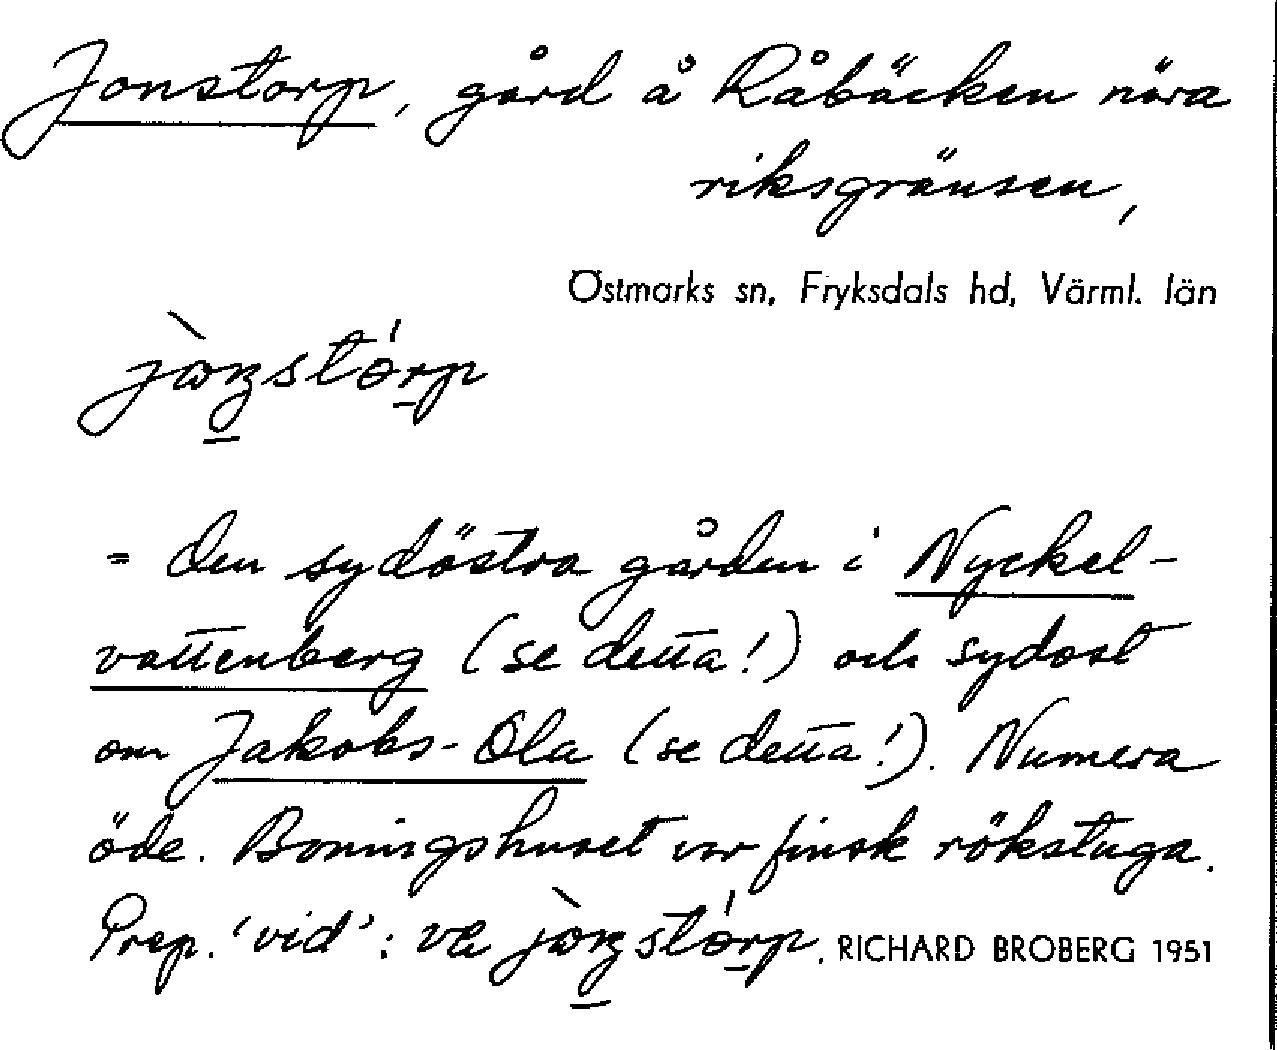 Jonstorp, gård å Råbäcken nära
riksgränsen,
Östmarks sn, Fryksdals hd, Värml. län
= Den sydöstra gården i Nyckel-
vattenberg (se detta!) och sydost
om Jakobs-Ola (se detta!). Numera
öde. Boningshuset var finsk rökstuga.
Prep. 'vid': va RICHARD BROBERG 1951